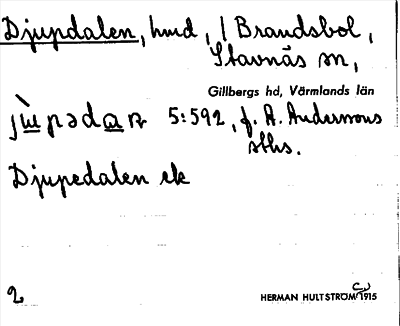 Djupdalen, hmd, / Brandsbol,
Stavnäs sn,
Gillbergs hd, Värmlands län
5:592, f. A. Anderssons
sths.
Djupedalen ek
2
HERMAN HULTSTRÖM 1915